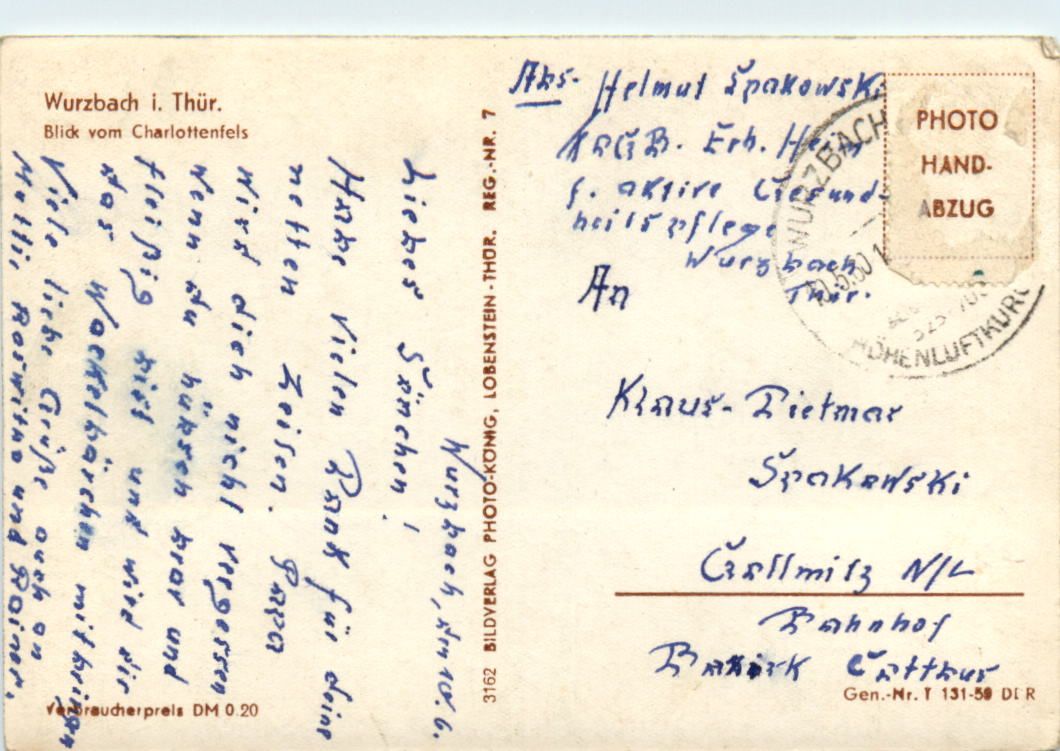 Wurzbach i. Thür.
Blick vom Charlottenfels
Wurzbach, den 10.6.
Liebes Sänchen!
Habe vielen Dank für deine
netten Zeilen. Papa
wird dich nicht vergessen
wenn du hübsch brav und
fleißig bist und wird dir
das Wackelbärchen mitbringen
Viele liebe Grüße auch an
Mutti Roswitha und Rainer.
Verbraucherpreis DM 0.20
3162 BILDVERLAG PHOTO-KÖNIG, LOBENSTEIN-THÜR. REG.-NR. 7
Abs. Helmut Spakowski
FDGB. Erh. Heim
f. aktive Gesund-
heitspflege
Wurzbach
Thür.
PHOTO
HAND-
ABZUG
WURZBACH
HÖHENLUFTKURO
An
Klaus-Dietmar
Spakowski
Gollmitz N/L
Bahnhof
Bezirk Cottbus
Gen.-Nr. T 131-59 DDR